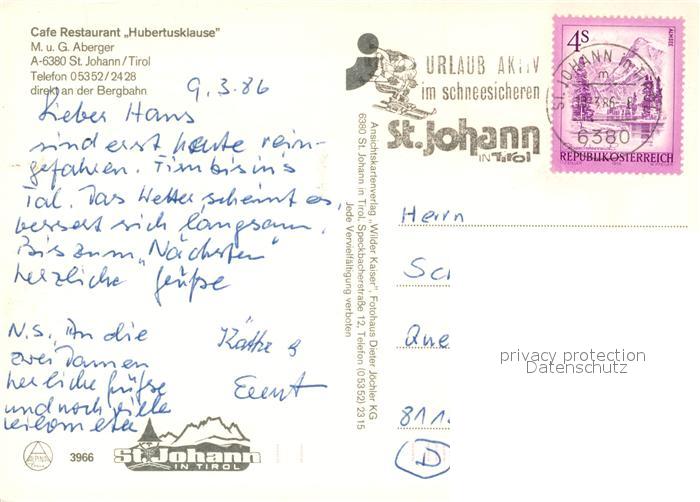 Cafe Restaurant „Hubertusklause"
M. u. G. Aberger
A-6380 St. Johann/Tirol
Telefon 05352/2428
direkt an der Bergbahn
9.3.86
Lieber Hans
sind erst heute rein-
gefahren. Firn bis in's
Tal. Das Wetter scheint es
bessert sich langsam.
Bis zum „Nächsten"
herzliche Grüße
Käthe &
N.S. An die
zwei Damen
herzliche Grüße
und noch viele
3966
St. Johann
IN TIROL
Ansichtskartenverlag „Wilder Kaiser", Fotohaus Dieter Jöchler KG
6380 St. Johann in Tirol, Speckbacherstraße 12, Telefon (05352) 2315
Jede Vervielfältigung verboten
URLAUB AKTIV
im schneesicheren
St. Johann
IN TIROL
4S
ALMSEE
ST. JOHANN in
6380
REPUBLIK ÖSTERREICH
Herrn
Sc
Que
811
D
privacy protection
Datenschutz